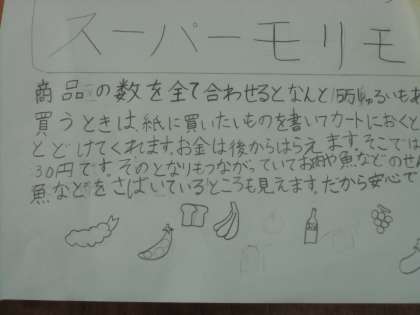 スーパーモリモ
商品の数を全て合わせるとなんと15万しゅるいもあ
買うときは、紙に買いたいものを書いてカートにおくと
とどけてくれます。お金は後からはらえます。そこでは
30円です。そのとなりもつながっていてお肉や魚などのせん
魚などをさばいているところも見えます。だから安心で